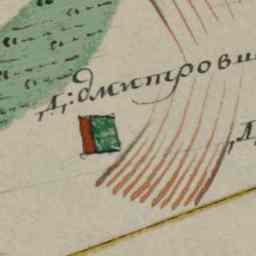 Д: дмитрови
Д